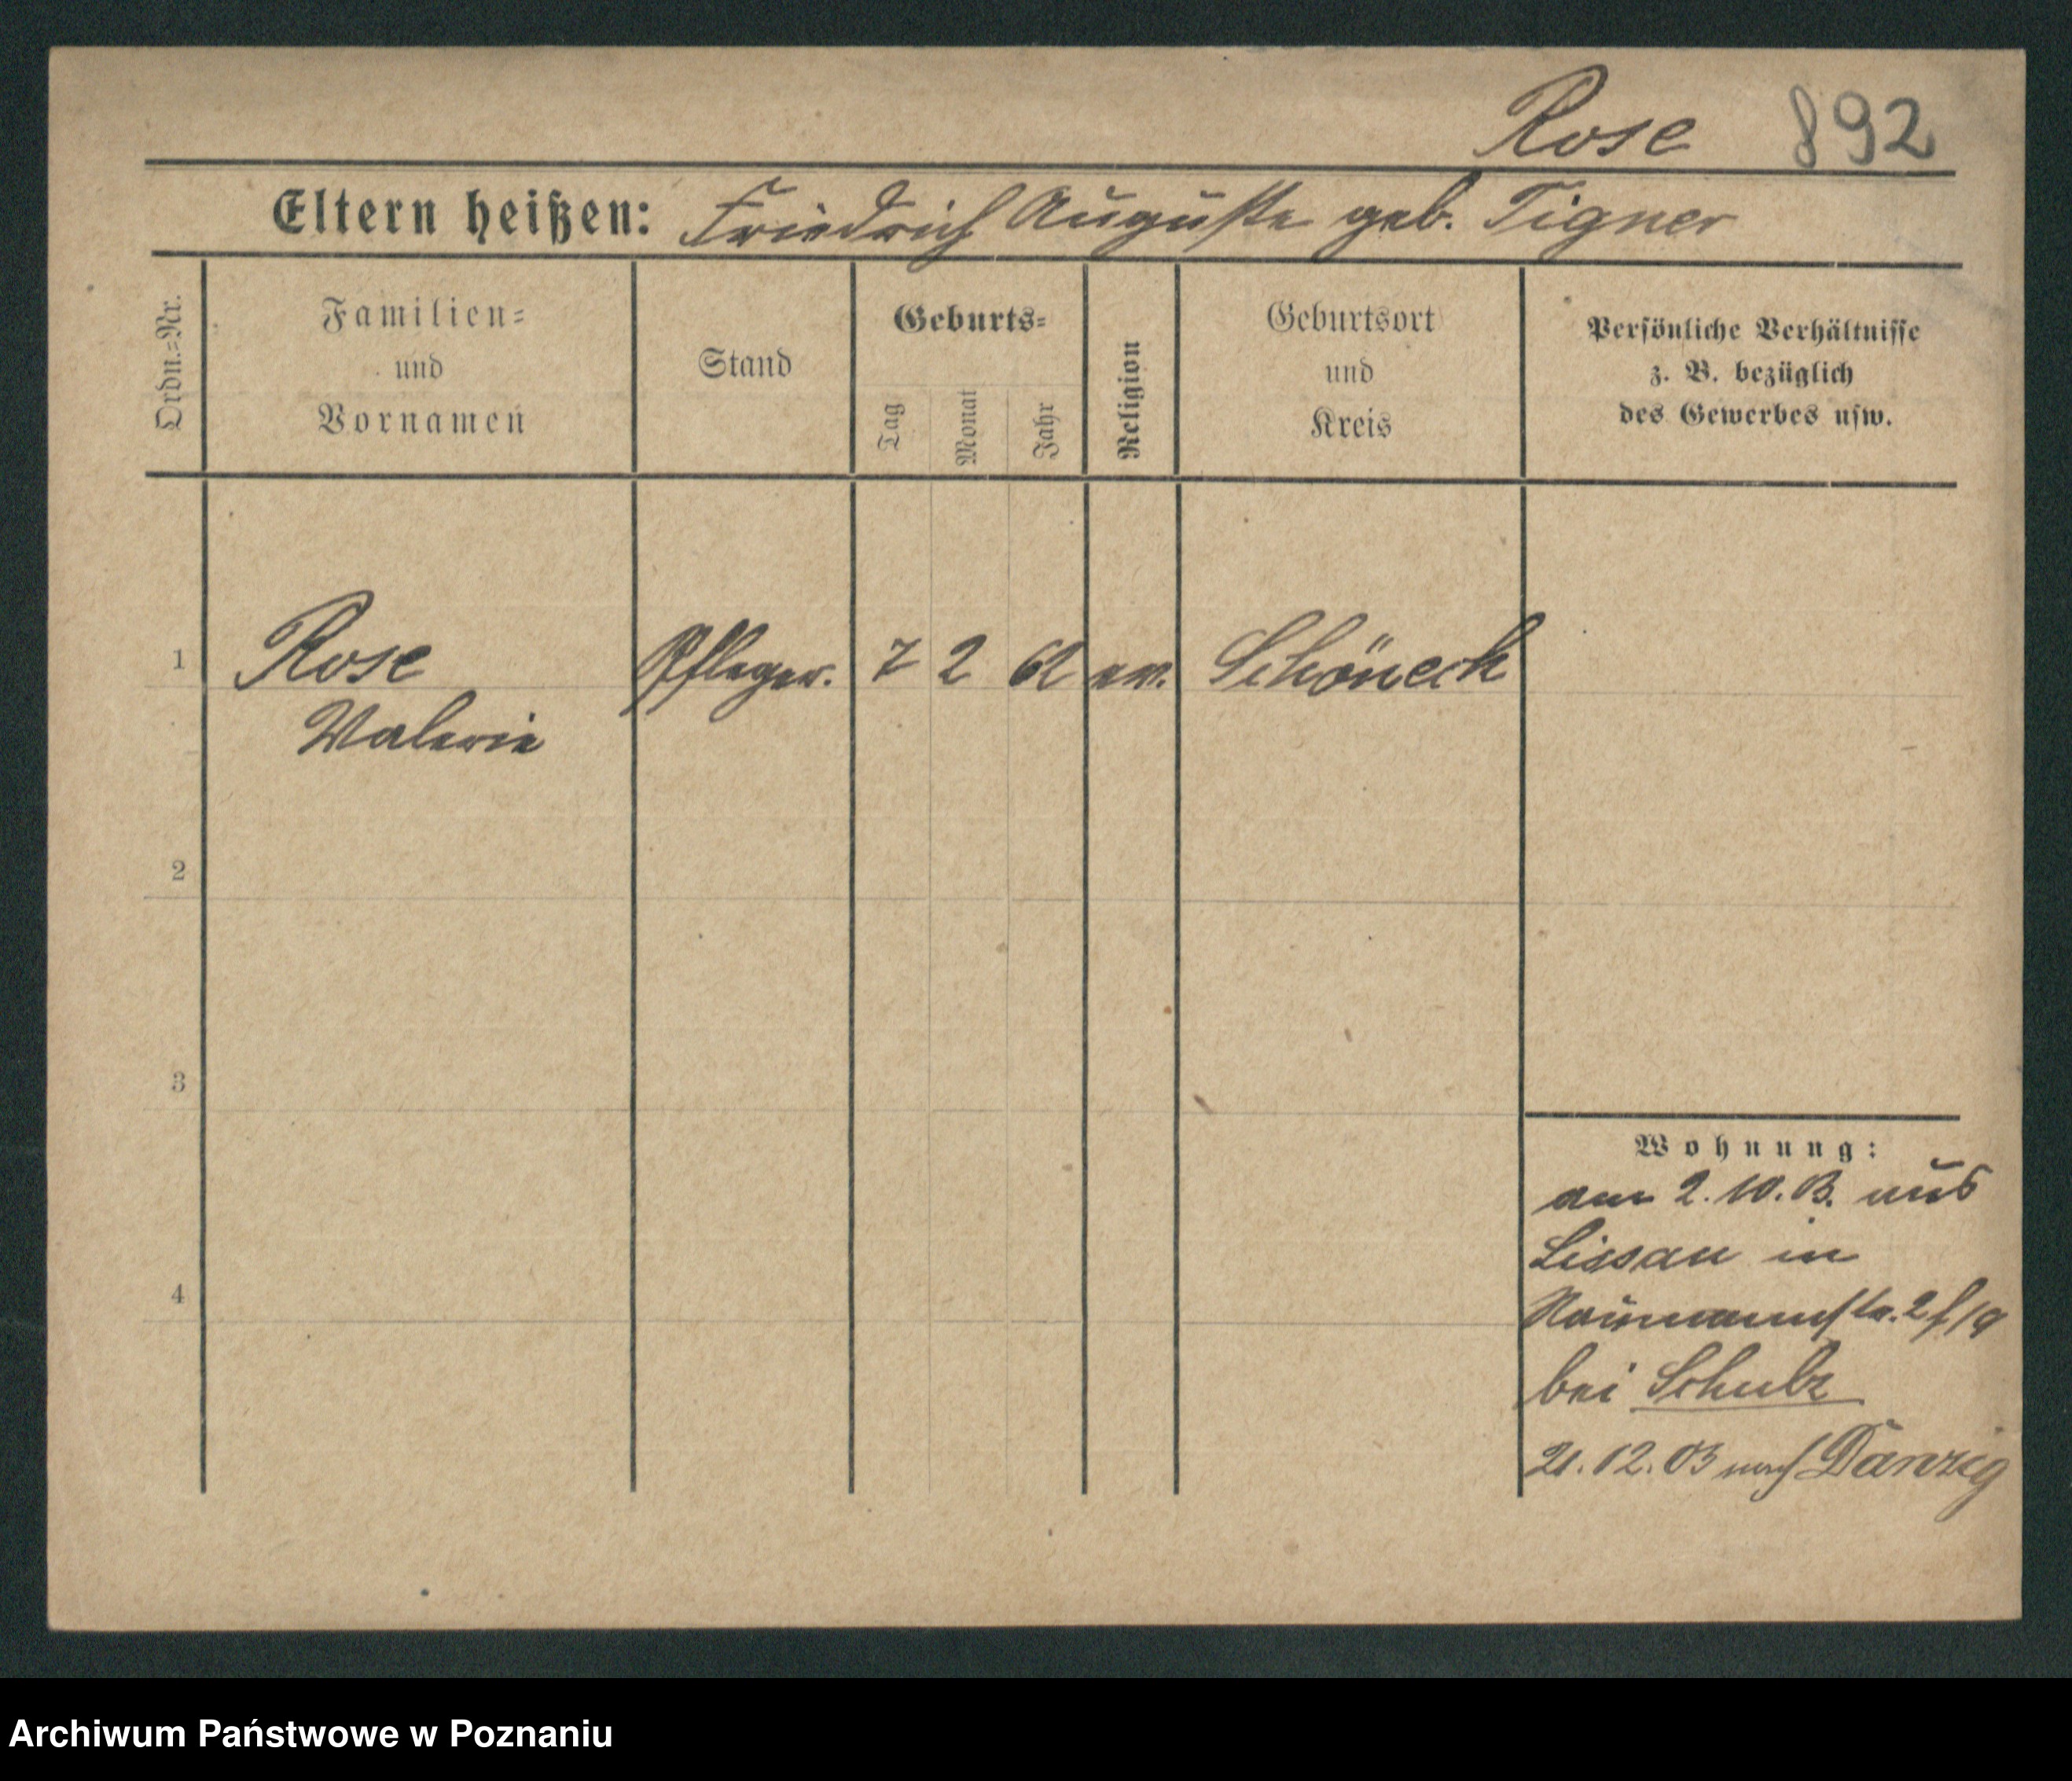 Rose 892
Eltern heißen: Friedrich Auguste geb. Tigner
Ordn.-Nr.
Familien-
und
Vornamen
Stand
Geburts-
Tag
Monat
Jahr
Religion
Geburtsort
und
Kreis
Persönliche Verhältnisse
z. B. bezüglich
des Gewerbes usw.
1 Rose Pfleger. 7 2 62 ev. Schöneck
Valerie
2
3
4
Wohnung:
am 2.10.03. aus
Lissau in
Naumannstr. 2
bei Schulz
21.12.03 nach Danzig
Archiwum Państwowe w Poznaniu